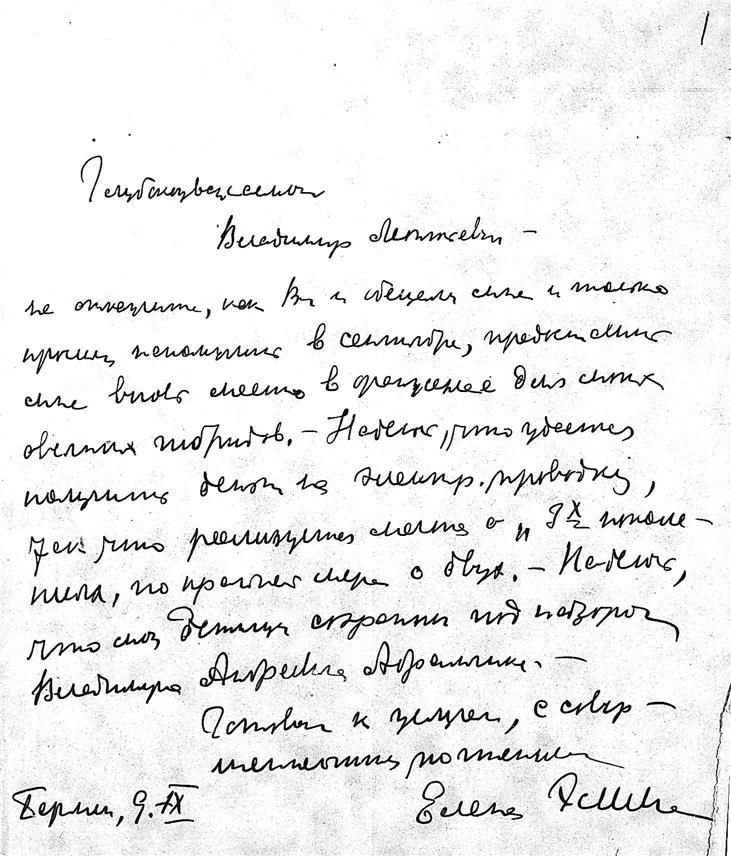 1
Глубокоуважаемый
Владимир Леонтьевич –
не откажите, как Вы и обещали мне и только
прошу исполнить в сентябре, предоставить
мне вновь место в оранжерее для моих
овсяных гибридов. – Надеюсь, что удастся
получить деньги на электр. проводку,
так что реализуется мечта о „ 3х поколе–
ниях, по крайней мере о двух. – Надеюсь,
что мои детища сохранны под надзором
Владимира Андреевича
Готовая к услугам, с совер–
шенным почтением
Берлин, 9. IX Елена